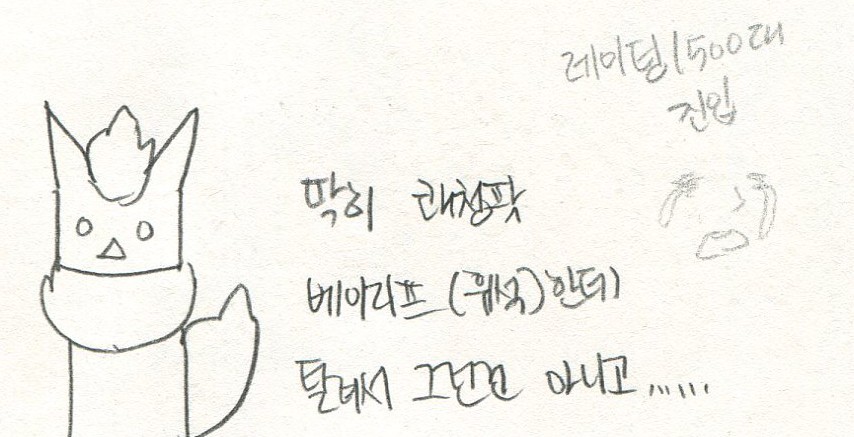 레이팅1500대
진입
딱히 쾌청팟
베이리프(휘석)한테
털려서 그런건 아니고......